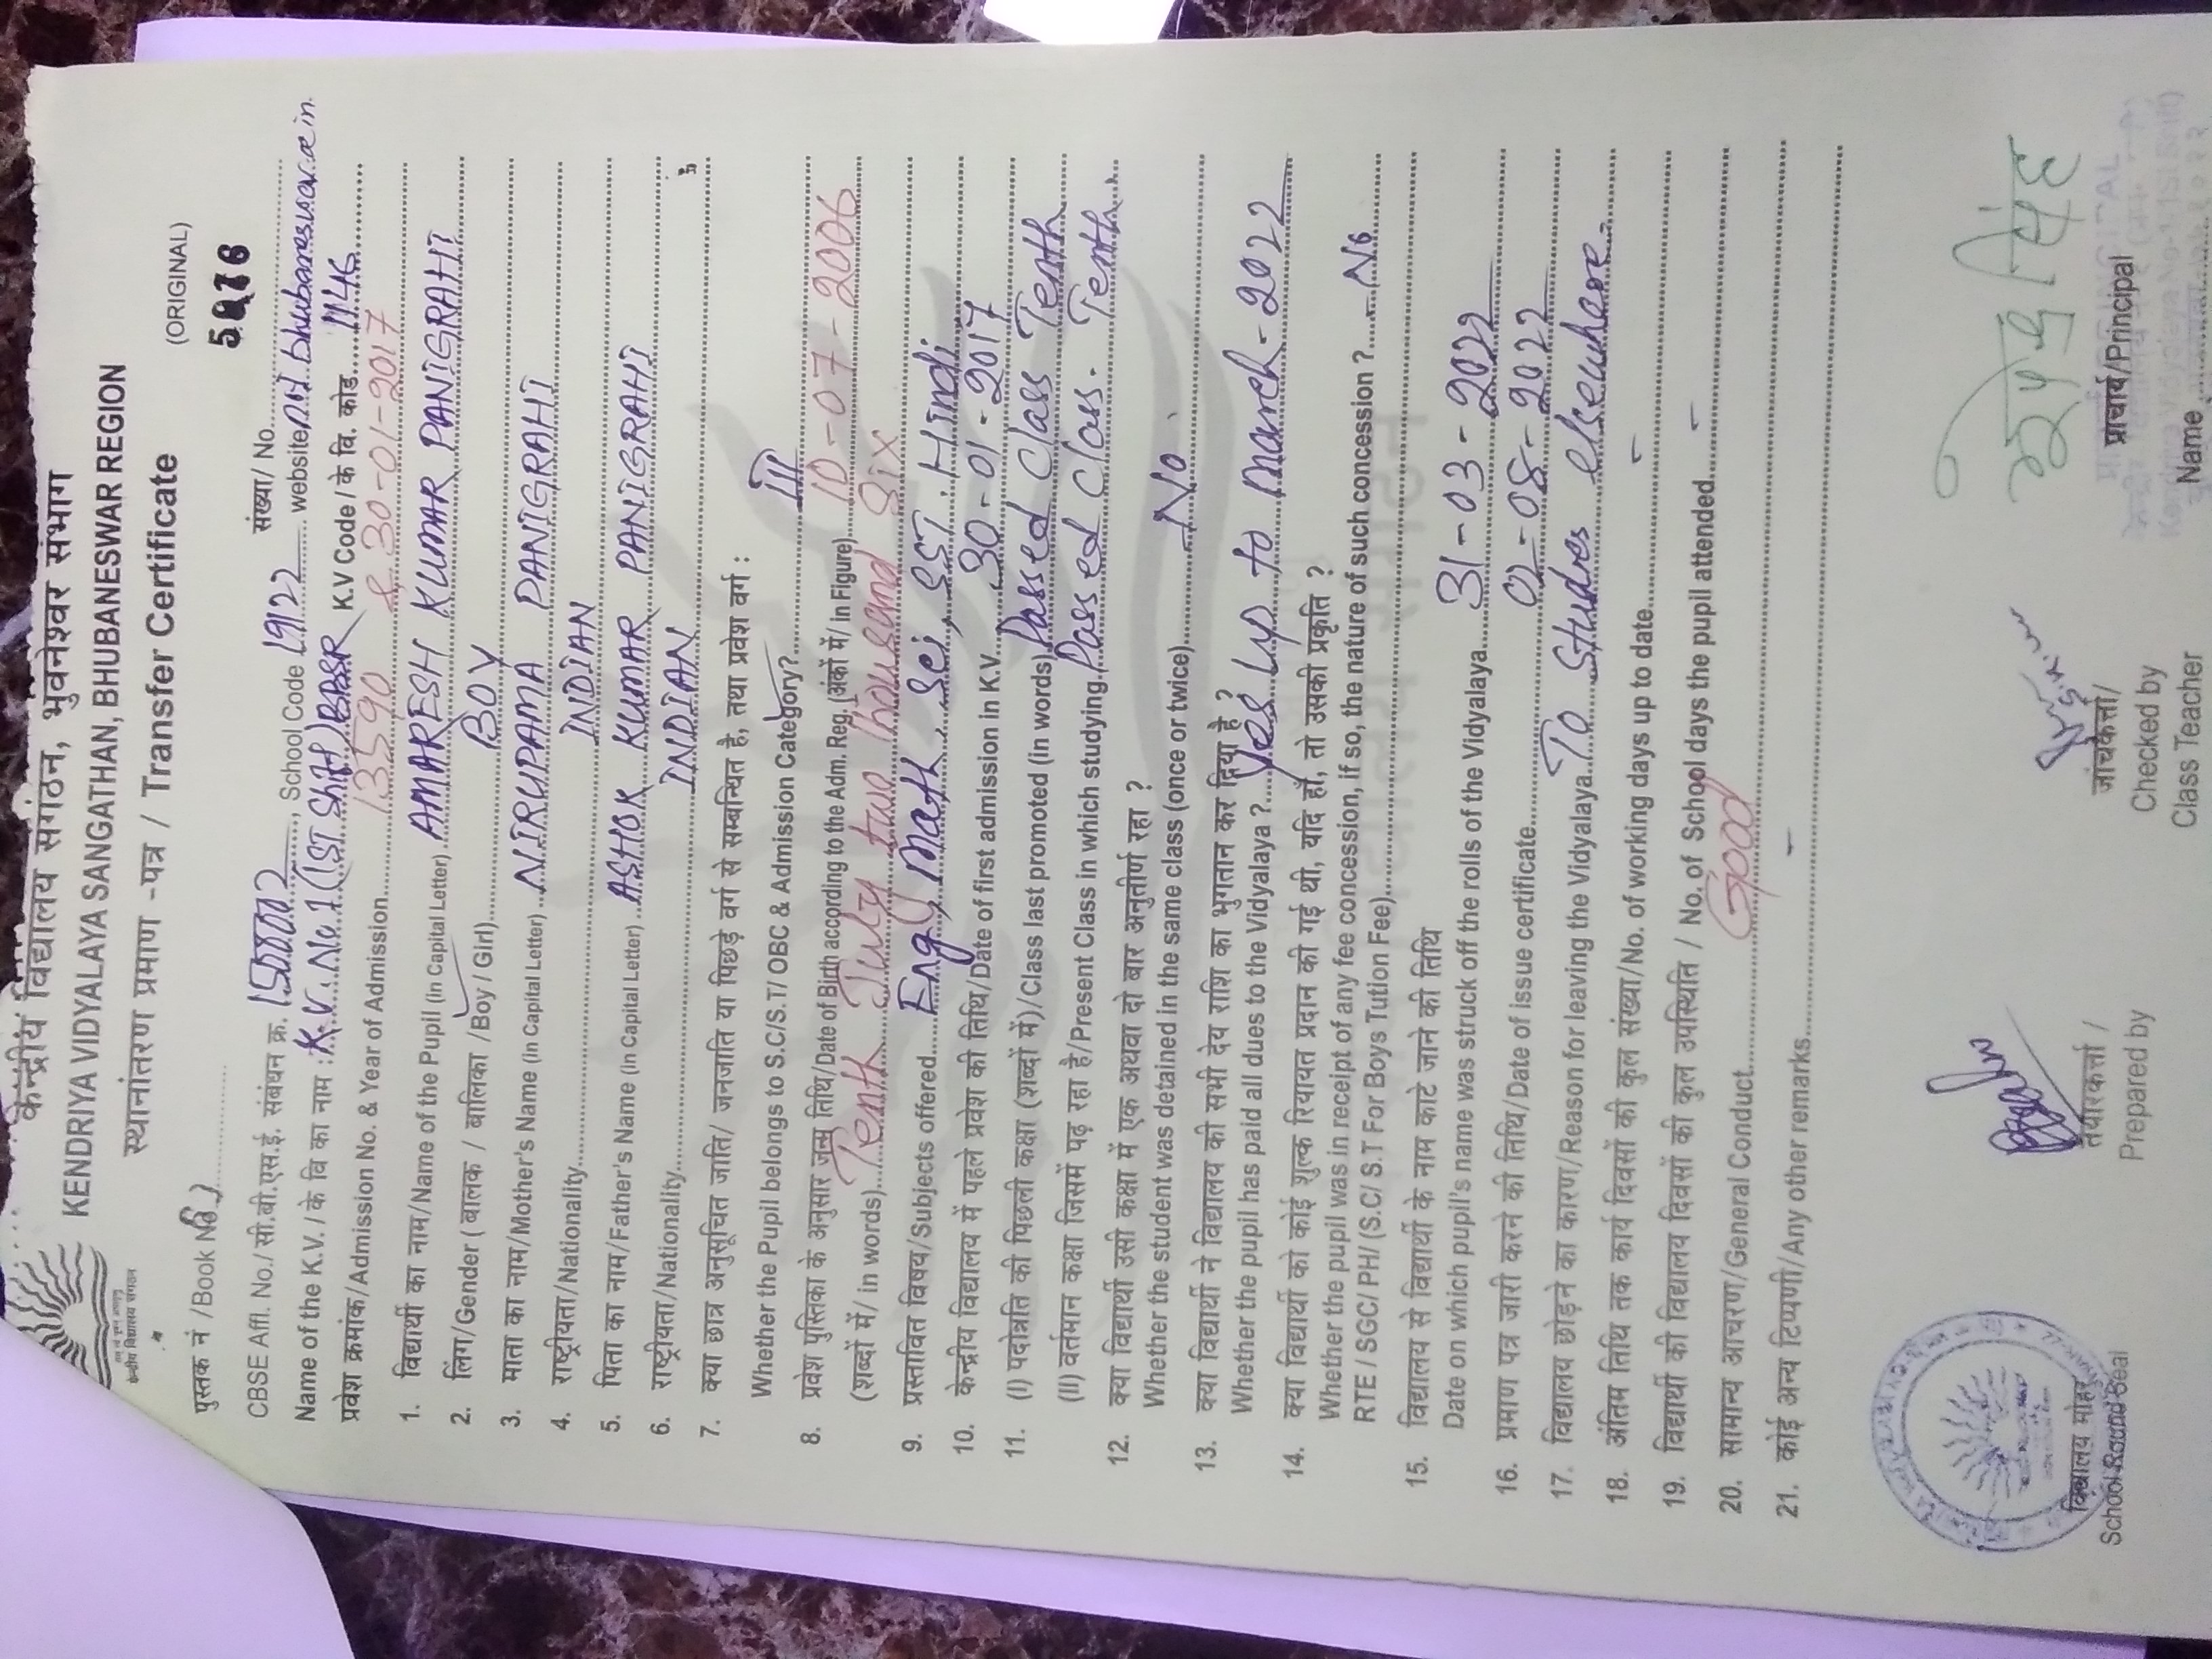 केन्द्रीय विद्यालय संगठन, भुवनेश्वर संभाग
KENDRIYA VIDYALAYA SANGATHAN, BHUBANESWAR REGION
स्थानांतरण प्रमाण -पत्र / Transfer Certificate
(ORIGINAL)
केन्द्रीय विद्यालय संगठन
पुस्तक नं /Book No
CBSE Affl. No./ सी.बी.एस.ई. संबंधन क्र. School Code 1912 संख्या/ No.
Name of the K.V. / के वि का नाम : K.V. No.1 (1ST Shift) BBSR website
K.V Code / के वि. कोड 1146
प्रवेश क्रमांक/Admission No. & Year of Admission 13590 & 30-01-2017
1. विद्यार्थी का नाम/Name of the Pupil (in Capital Letter) AMARESH KUMAR PANIGRAHI
2. लिंग/Gender ( बालक / बालिका /Boy / Girl) BOY
3. माता का नाम/Mother's Name (in Capital Letter) NIRUPAMA PANIGRAHI
4. राष्ट्रीयता/Nationality INDIAN
5. पिता का नाम/Father's Name (in Capital Letter) ASHOK KUMAR PANIGRAHI
6. राष्ट्रीयता/Nationality INDIAN
7. क्या छात्र अनुसूचित जाति/ जनजाति या पिछड़े वर्ग से सम्बन्धित है, तथा प्रवेश वर्ग :
Whether the Pupil belongs to S.C/S.T/ OBC & Admission Category? III
8. प्रवेश पुस्तिका के अनुसार जन्म तिथि/Date of Birth according to the Adm. Reg. (अंकों में/ in Figure) 10-07-2006
(शब्दों में/ in words) Tenth July two thousand Six
9. प्रस्तावित विषय/Subjects offered Eng, Math, Sci, SST, Hindi
10. केन्द्रीय विद्यालय में पहले प्रवेश की तिथि/Date of first admission in K.V. 30-01-2017
11. (I) पदोन्नति की पिछली कक्षा (शब्दों में)/Class last promoted (in words) Passed Class Tenth
(II) वर्तमान कक्षा जिसमें पढ़ रहा है/Present Class in which studying. Passed Class. Tenth
12. क्या विद्यार्थी उसी कक्षा में एक अथवा दो बार अनुतीर्ण रहा ?
Whether the student was detained in the same class (once or twice) No.
13. क्या विद्यार्थी ने विद्यालय की सभी देय राशि का भुगतान कर दिया है ?
Whether the pupil has paid all dues to the Vidyalaya ? Yes Up to March-2022
14. क्या विद्यार्थी को कोई शुल्क रियायत प्रदान की गई थी, यदि हाँ, तो उसकी प्रकृति ?
Whether the pupil was in receipt of any fee concession, if so, the nature of such concession ? No
RTE / SGC/ PH/ (S.C/ S.T For Boys Tution Fee)
15. विद्यालय से विद्यार्थी के नाम काटे जाने की तिथि
Date on which pupil's name was struck off the rolls of the Vidyalaya 31-03-2022
16. प्रमाण पत्र जारी करने की तिथि/Date of issue certificate 02-08-2022
17. विद्यालय छोड़ने का कारण/Reason for leaving the Vidyalaya To Studies elsewhere.
18. अंतिम तिथि तक कार्य दिवसों की कुल संख्या/No. of working days up to date -
19. विद्यार्थी की विद्यालय दिवसों की कुल उपस्थिति / No. of School days the pupil attended -
20. सामान्य आचरण/General Conduct Good
21. कोई अन्य टिप्पणी/Any other remarks -
विद्यालय मोहर
School Round Seal
तैयारकर्त्ता /
Prepared by
जांचकर्त्ता/
Checked by
Class Teacher
प्राचार्य/Principal
Name